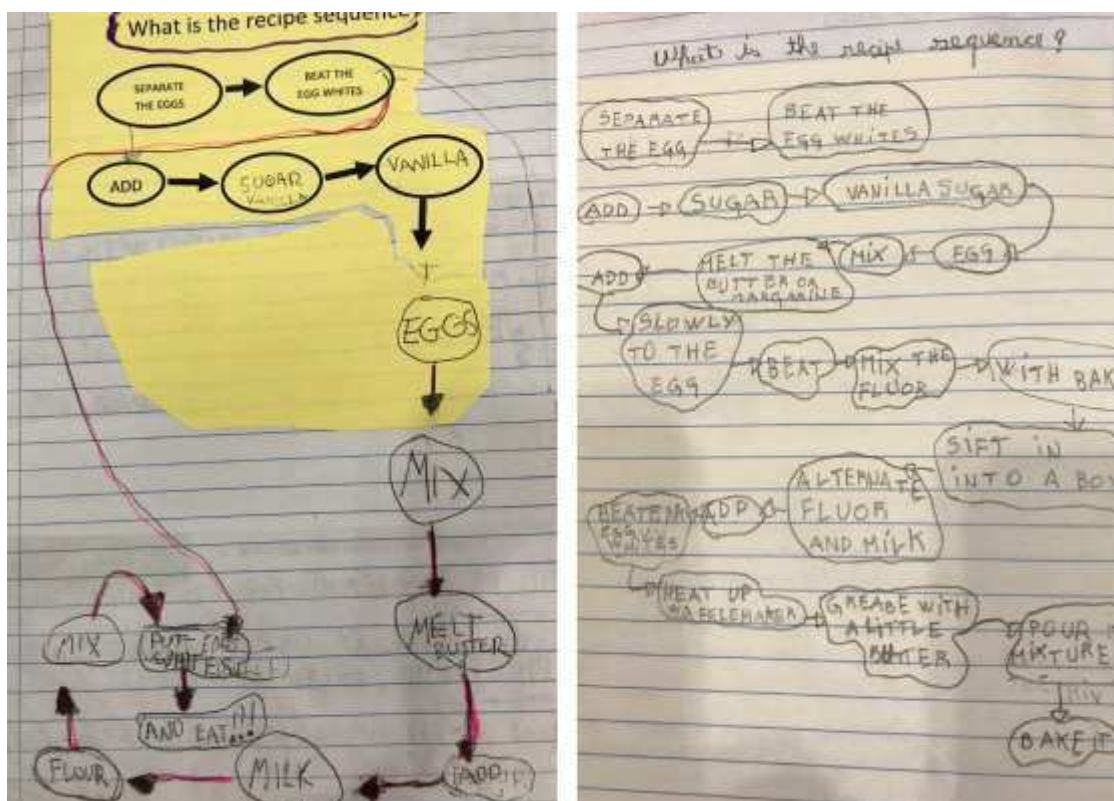 What is the recipe sequence?
SEPARATE
THE EGGS
BEAT THE
EGG WHITES
ADD
SUGAR
VANILLA
VANILLA
EGGS
MIX
MELT
BUTTER
ADD IT
MILK
FLOUR
MIX
PUTT EGG
AND EAT!!!
What is the recipe sequence?
SEPARATE
THE EGG
BEAT THE
EGG WHITES
ADD
SUGAR
VANILLA SUGAR
EGG
MIX
MELT THE
BUTTER OR
MARGARINE
ADD
SLOWLY
TO THE
EGG
BEAT
MIX THE
FLUOR
WITH BAK
SIFT IN
INTO A BOW
ALTERNATE
FLUOR
AND MILK
ADD
BEATEN
EGG
WHITES
HEAT UP
WAFELEMAKER
GREASE WITH
A LITTLE
BUTTER
POUR
MIXTURE
MIX
BAKE IT